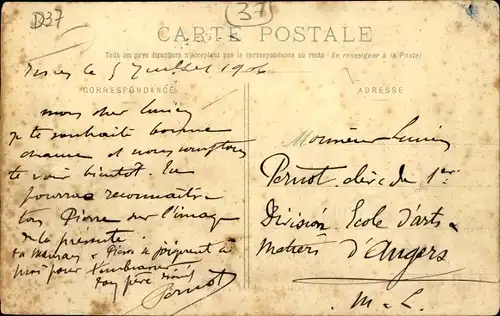 D37
37
CARTE POSTALE
Tous les pays étrangers n'acceptent pas la correspondance au recto (Se renseigner à la Poste)
le 5 Juillet 190
CORRESPONDANCE
ADRESSE
mon cher Lucien
je te souhaite bonne
chance et nous comptons
te voir bientôt. Tu
pourras reconnaitre
ton Pierre sur l'image
de la présente.
ta maman & Pierre se joignent à
moi pour t'embrasser
ton père
Pernot
Monsieur Lucien
Pernot élève de 1ère
Division Ecole d'arts &
Metiers d'Angers
M-L.